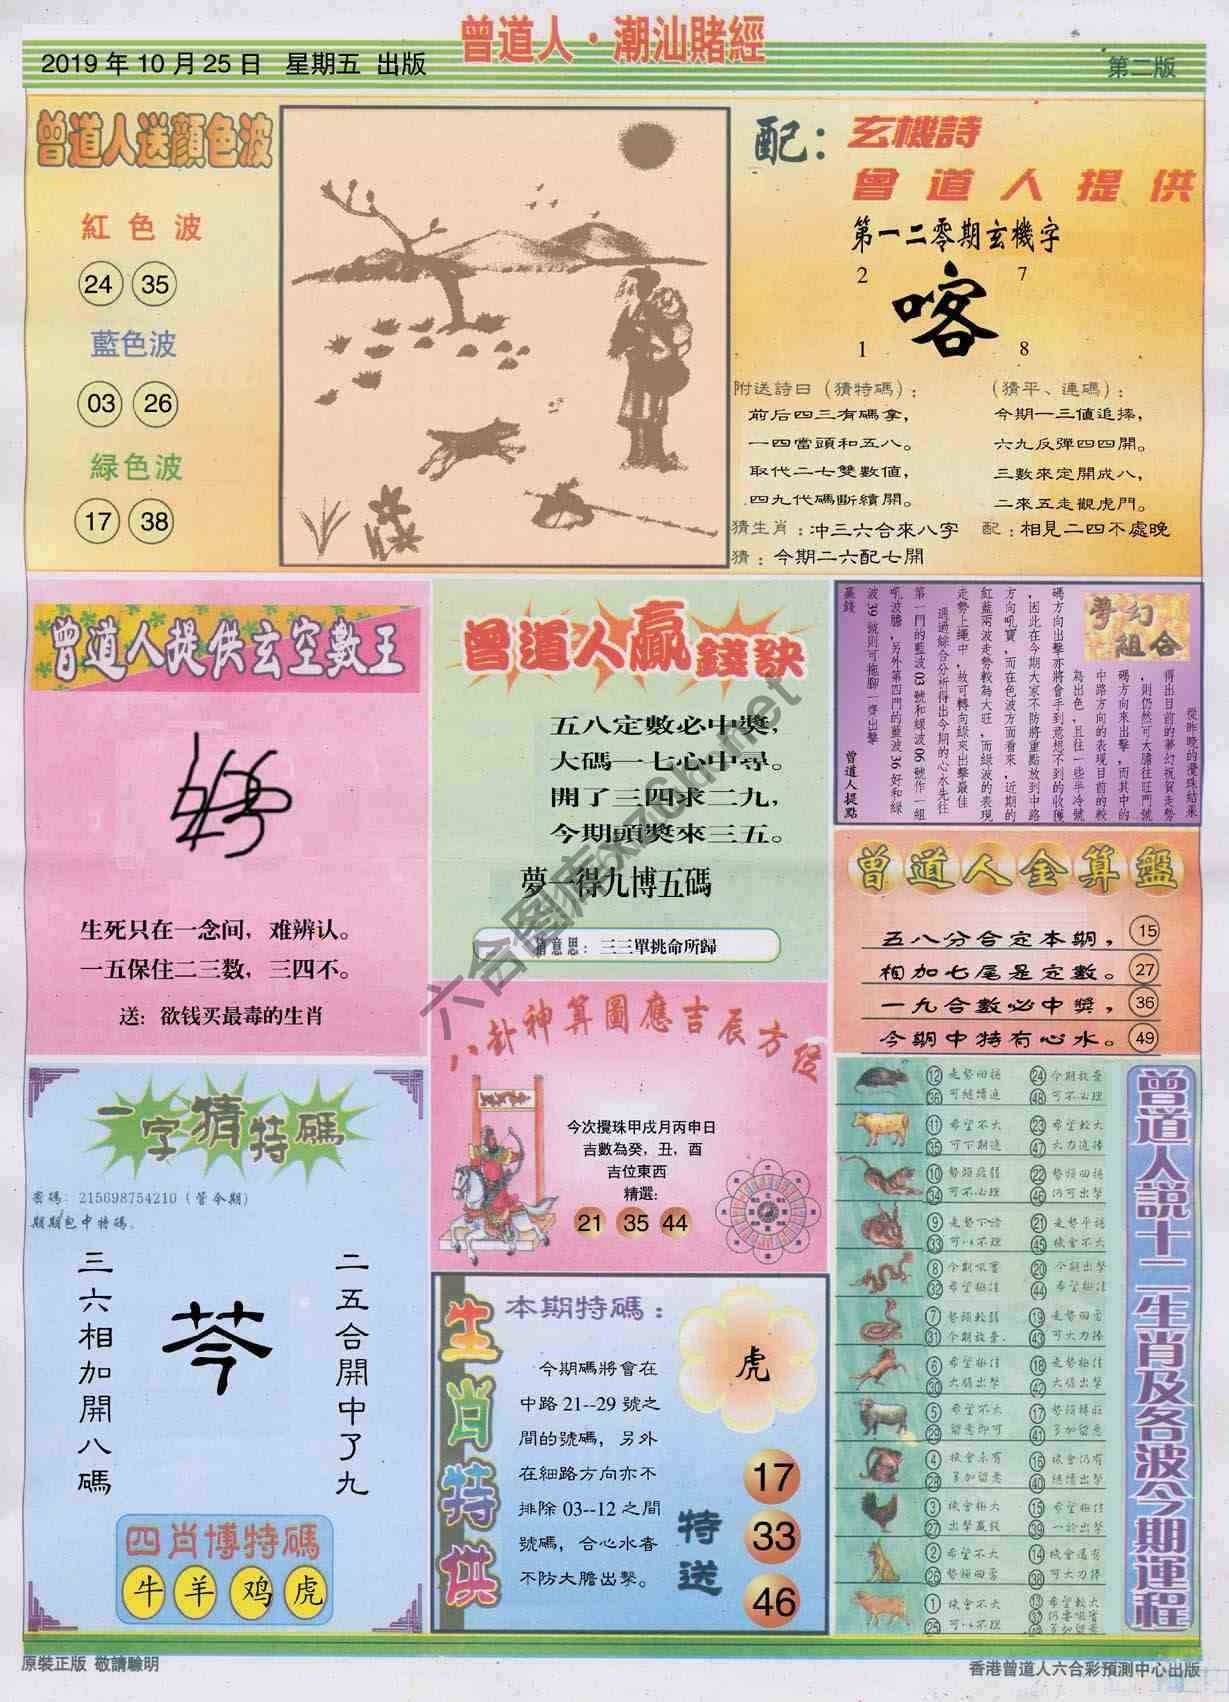 曾道人·潮汕賭經
2019年10月25日 星期五 出版
第二版
曾道人送顏色波
紅色波
24 35
藍色波
03 26
緑色波
17 38
配：玄機詩
曾道人提供
第一二零期玄機字
2 7
喀
1 8
附送詩曰（猜特碼）：
前后四三有碼拿，
一四當頭和五八。
取代二七雙數值，
四九代碼斷續開。
（猜平、連碼）：
今期一三值追捧，
六九反彈四四開。
三數來定開成八，
二來五走觀虎門。
猜生肖：冲三六合來八字
配：相見二四不處晚
猜：今期二六配七開
曾道人提供玄空數王
生死只在一念间，难辨认。
一五保住二三数，三四不。
送：欲钱买最毒的生肖
曾道人贏錢訣
五八定數必中獎，
大碼一七心中尋。
開了三四求二九，
今期頭獎來三五。
夢一得九博五碼
猜意思：三三單挑命所歸
夢幻組合
從昨晚的攪珠結果
得出目前的夢幻祝賀走勢
，則仍然可大膽往旺門號
碼方向來出擊，而其中的
中路方向的表現目前的較
為出色，且往一些半冷號
碼方向出擊亦將會手到意想不到的收穫
，因此在今期大家不防將重點放到中路
方向吼寶，而在色波方面看來，近期的
紅藍兩波走勢較為大旺，而綠波的表現
走勢上繩中，故可轉向綠來出擊最佳
通過綜合分析得出今期的心水先往
第一門的藍波03號和綠波06號作一組
吼波膽，另外第四門的藍波36好和綠
波39號則可拖腳一齊出擊
贏錢
曾道人提點
曾道人金算盤
五八分合定本期， 15
相加七尾是定數。 27
一九合數必中獎， 36
今期中特有心水。 49
八卦神算圖應吉辰方位
今次攪珠甲戌月丙申日
吉數為癸，丑，酉
吉位東西
精選：
21 35 44
一字猜特碼
密碼：215698754210（管今期）
期期包中特碼。
三六相加開八碼
芩
二五合開中了九
四肖博特碼
牛 羊 鸡 虎
生肖特供
本期特碼：
虎
今期碼將會在
中路21--29號之
間的號碼，另外
在細路方向亦不
排除03--12之間
號碼，合心水者
不防大膽出擊。
特送
17
33
46
曾道人説十二生肖及各波今期運程
12 36 走勢回揚 可繼續追 24 48 今期救星 可不必理
11 35 希望不大 可下期追 23 47 希望較大 大力追捧
10 34 勢頭疲弱 可不必理 22 46 勢頭回揚 仍可出擊
9 33 走勢下滑 可以不理 21 45 走勢平穩 機會不大
8 32 今期吼寶 希望極佳 20 44 今期出擊 希望極佳
7 31 勢頭較弱 今期放棄。 19 43 走勢回勇 可大力捧
6 30 希望極佳 大條出擊 18 42 走勢極佳 大條出擊
5 29 希望不大 留意即可 17 41 勢頭轉旺 多加留意
4 28 機會未有 多加留意 16 40 機會仍有 繼續出擊
3 27 機會極大 出擊贏錢 15 39 希望極佳 一於出擊
2 26 希望不大 勢頭回勇 14 38 機會還有 可大力捧
1 25 機會不大 可以不理 13 37 49 希望較大 仍要吼實
原裝正版 敬請驗明
香港曾道人六合彩預測中心出版
六合图库6xzGid.net